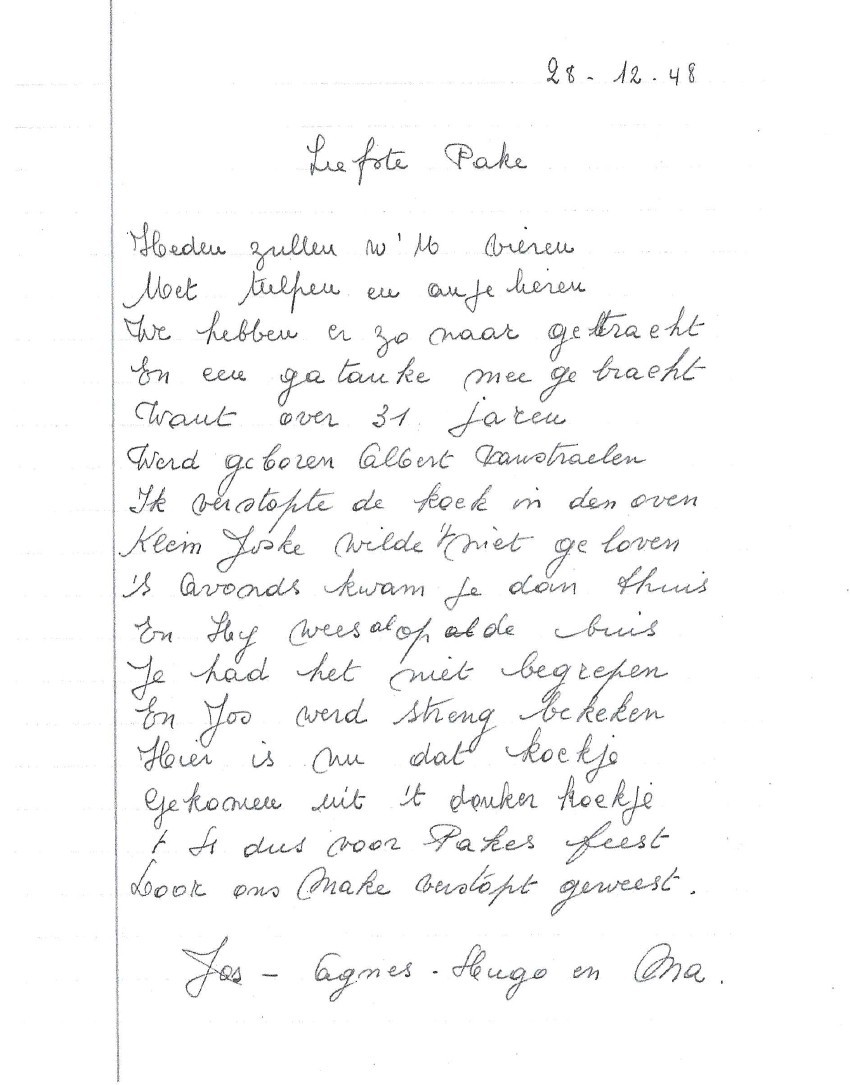 28 - 12 - 48
Liefste Pake
Heden zullen w' U vieren
Met tulpen en anjelieren
We hebben er zo naar getracht
En een gatauke meegebracht
Want over 31 jaren
Werd geboren Albert Vanstraelen
Ik verstopte de koek in den oven
Klein Joske wilde 't niet geloven
's Avonds kwam je dan thuis
En Hij wees al op al de buis
Je had het niet begrepen
En Jos werd streng bekeken
Hier is nu dat koekje
Gekomen uit 't donker hoekje
't Is dus voor Pakes feest
Door ons Make verstopt geweest.
Jos - Agnes - Hugo en Ma.